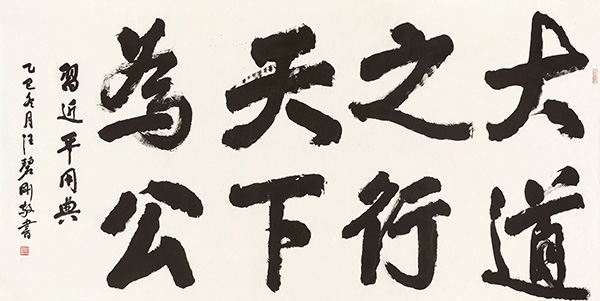 大道
之行
天下
為公
習近平用典
乙巳冬月汪碧剛敬書